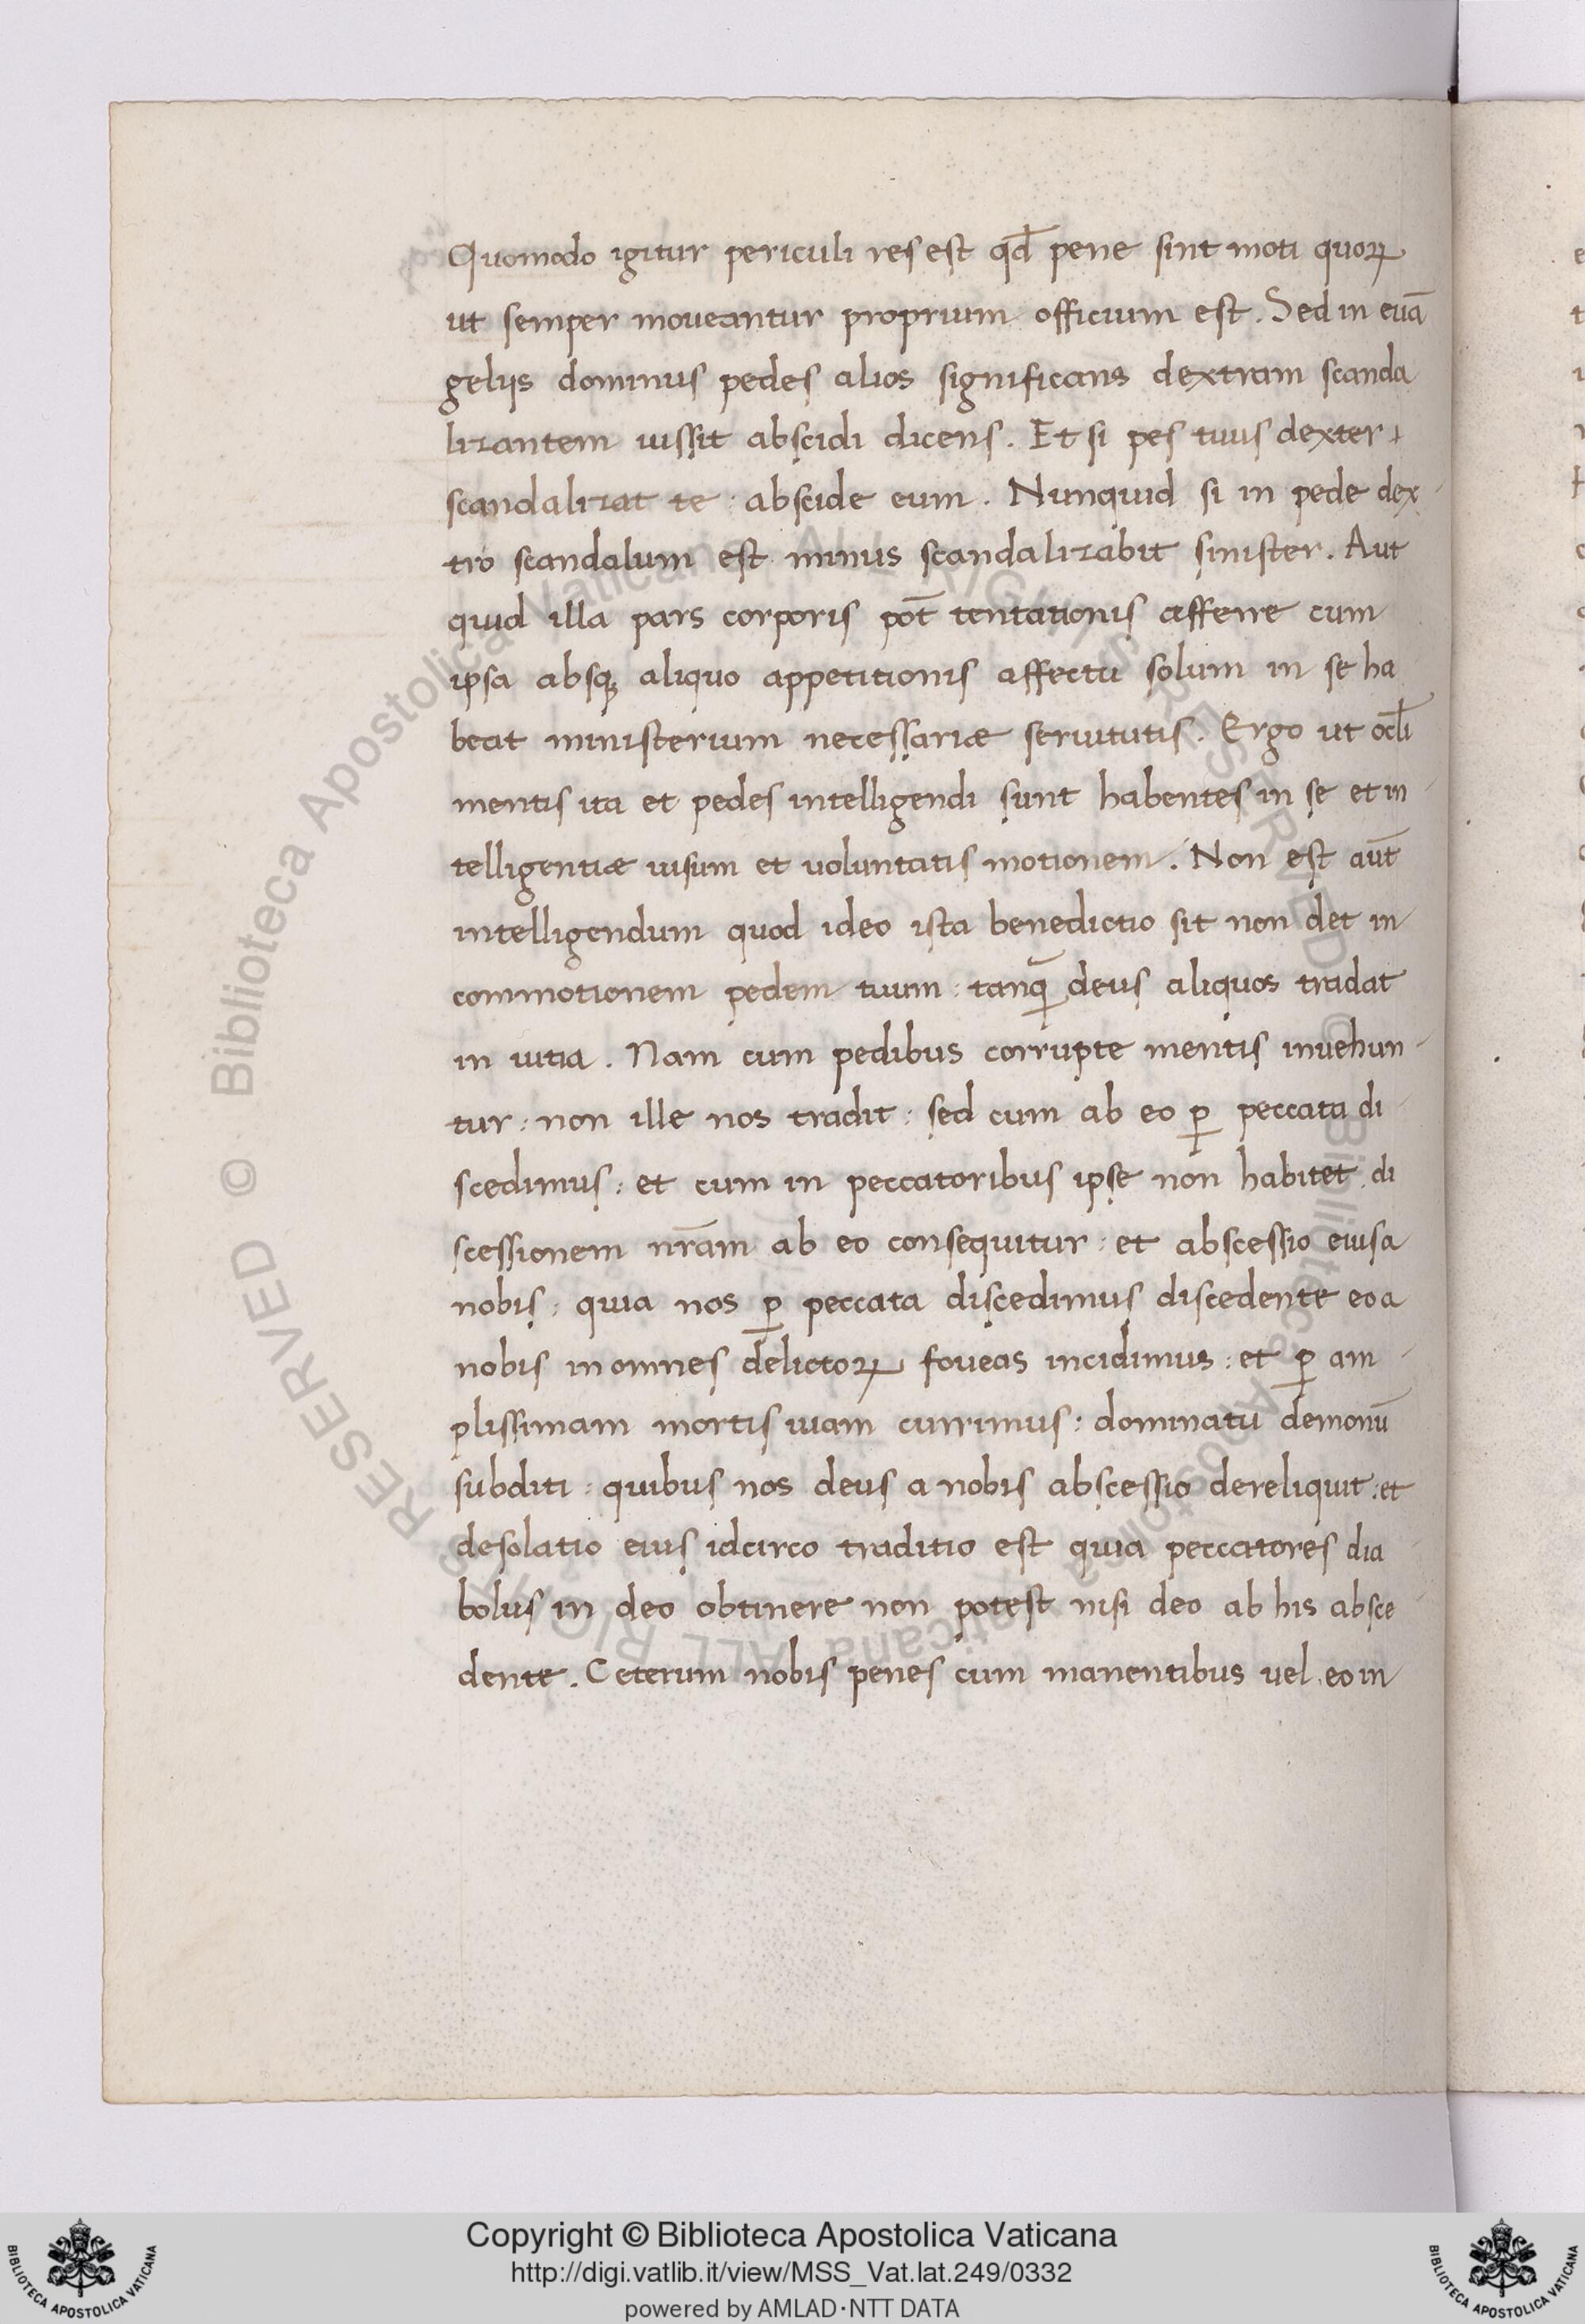 Quomodo igitur periculi res est qd̄ pene sint moti quoꝝ
ut semper moueantur proprium officium est. Sed in euā
gelijs dominus pedes alios significans dextram scanda
lizantem iussit abscidi dicens. Et si pes tuus dexter
scandalizat te: abscide eum. Nunquid si in pede dex
tro scandalum est minus scandalizabit sinister. Aut
quid illa pars corporis pot̄ tentationis afferre cum
ipsa absqꝫ aliquo appetitionis affectu solum in se ha
beat ministerium necessariæ seruitutis. Ergo ut ocl̄i
mentis ita et pedes intelligendi sunt habentes in se et in
telligentiæ uisum et uoluntatis motionem. Non est aūt
intelligendum quod ideo ista benedictio sit non det in
commotionem pedem tuum: tanq̄ deus aliquos tradat
in uitia. Nam cum pedibus corrupte mentis inuehun
tur: non ille nos tradit: sed cum ab eo ꝑ peccata di
scedimus: et cum in peccatoribus ipse non habitet di
scessionem nr̄am ab eo consequitur: et abscessio eius a
nobis: quia nos ꝑ peccata discedimus discedente eo a
nobis in omnes delictoꝝ foueas incidimus: et ꝑ am
plissimam mortis uiam currimus: dominatu demonū
subditi: quibus nos deus a nobis abscessio dereliquit: et
desolatio eius idcirco traditio est quia peccatores dia
bolus in deo obtinere non potest nisi deo ab his absce
dente. Ceterum nobis penes cum manentibus uel eo in
© Biblioteca Apostolica Vaticana ALL RIGHTS RESERVED
© Biblioteca Apostolica Vaticana ALL RIGHTS RESERVED
BIBLIOTECA APOSTOLICA VATICANA
Copyright © Biblioteca Apostolica Vaticana
http://digi.vatlib.it/view/MSS_Vat.lat.249/0332
powered by AMLAD·NTT DATA
BIBLIOTECA APOSTOLICA VATICANA